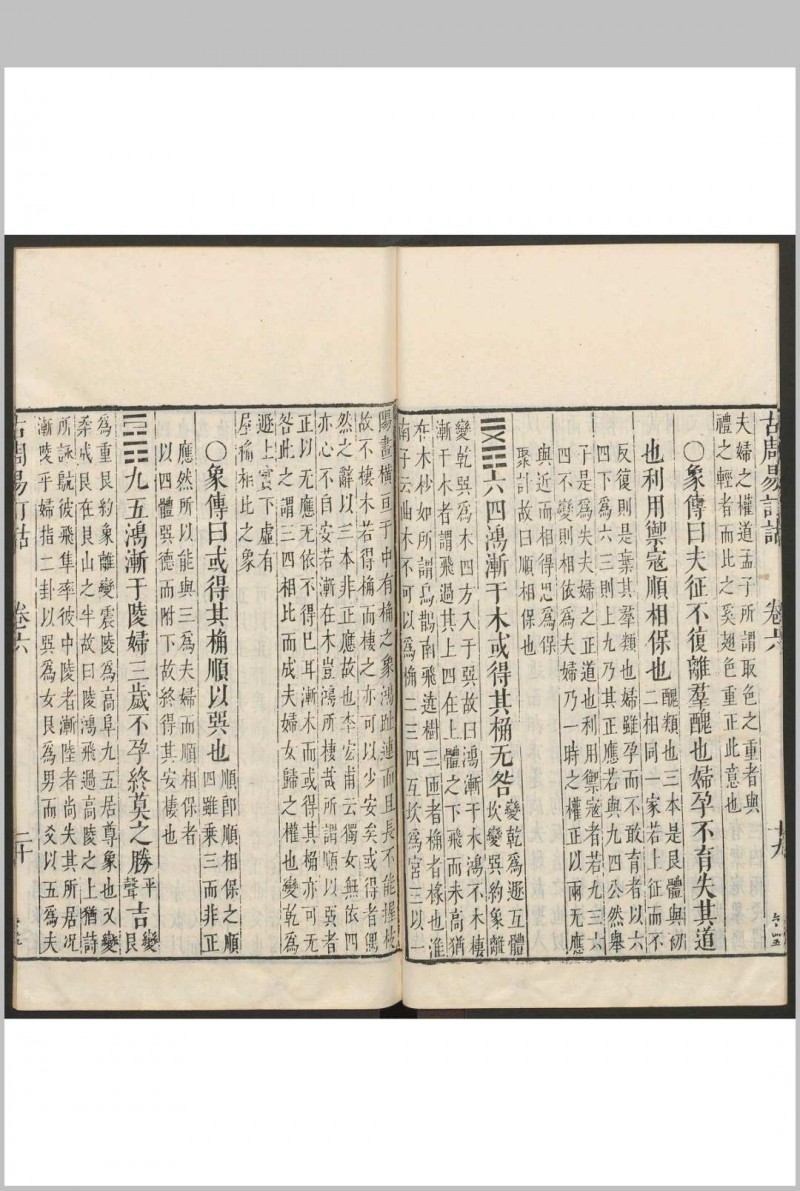 古周易訂詁 卷六 十九
夫婦之權道孟子所謂取色之重者與
禮之輕者而比之奚翅色重正此意也
○象傳曰夫征不復離羣醜也婦孕不育失其道
也利用禦寇順相保也 醜類也三本是艮體與初
二相同一家若上征而不
反復則是棄其羣類也婦雖孕而不敢育者以六
四下爲六三則上九乃其正應若與九四公然舉
子是爲失夫婦之正道也利用禦寇者若九三六
四不變則相依爲夫婦乃一時之權正以兩无應
與近而相得忍爲保
聚計故曰順相保也
六四鴻漸于木或得其桷无咎 變乾爲遯互體
坎變巽約象離
變乾巽爲木四方入于巽故曰鴻漸于木鴻不木棲
漸于木者謂飛過其上四在上體之下飛而未高猶
在木杪如所謂烏鵲南飛遶樹三匝者桷者椽也淮
南子云 木不可以爲桷二三四互坎爲宮三以一
陽畫橫亘于中有桷之象鴻趾連而且長不能握枝
故不棲木若得桷而棲之亦可以少安矣或得者偶
然之辭以三本非正應故也李宏甫云獨女無依四
亦心不自安若漸在木豈鴻所棲哉所謂順以巽者
正以无應无依不得巳耳漸木而或得其桷亦可无
咎此之謂三四相比而成夫婦女歸之權也變乾爲
遯上實下虛有
屋桷相比之象
○象傳曰或得其桷順以巽也 順卽順相保之順
四雖乘三而非正
應然所以能與三爲夫婦而順相保者
以四體巽德而附下故終得其安棲也
九五鴻漸于陵婦三歲不孕終莫之勝平聲吉 變
艮
爲重艮約象離變震陵爲高阜九五居尊象也又變
柔成艮在艮山之半故曰陵鴻飛過高陵之上猶詩
所詠鴥彼飛隼率彼中陵者漸陸者尚失其所居况
漸陵乎婦指二卦以巽爲女艮爲男而爻以五爲夫
古周易訂詁 卷六 二十